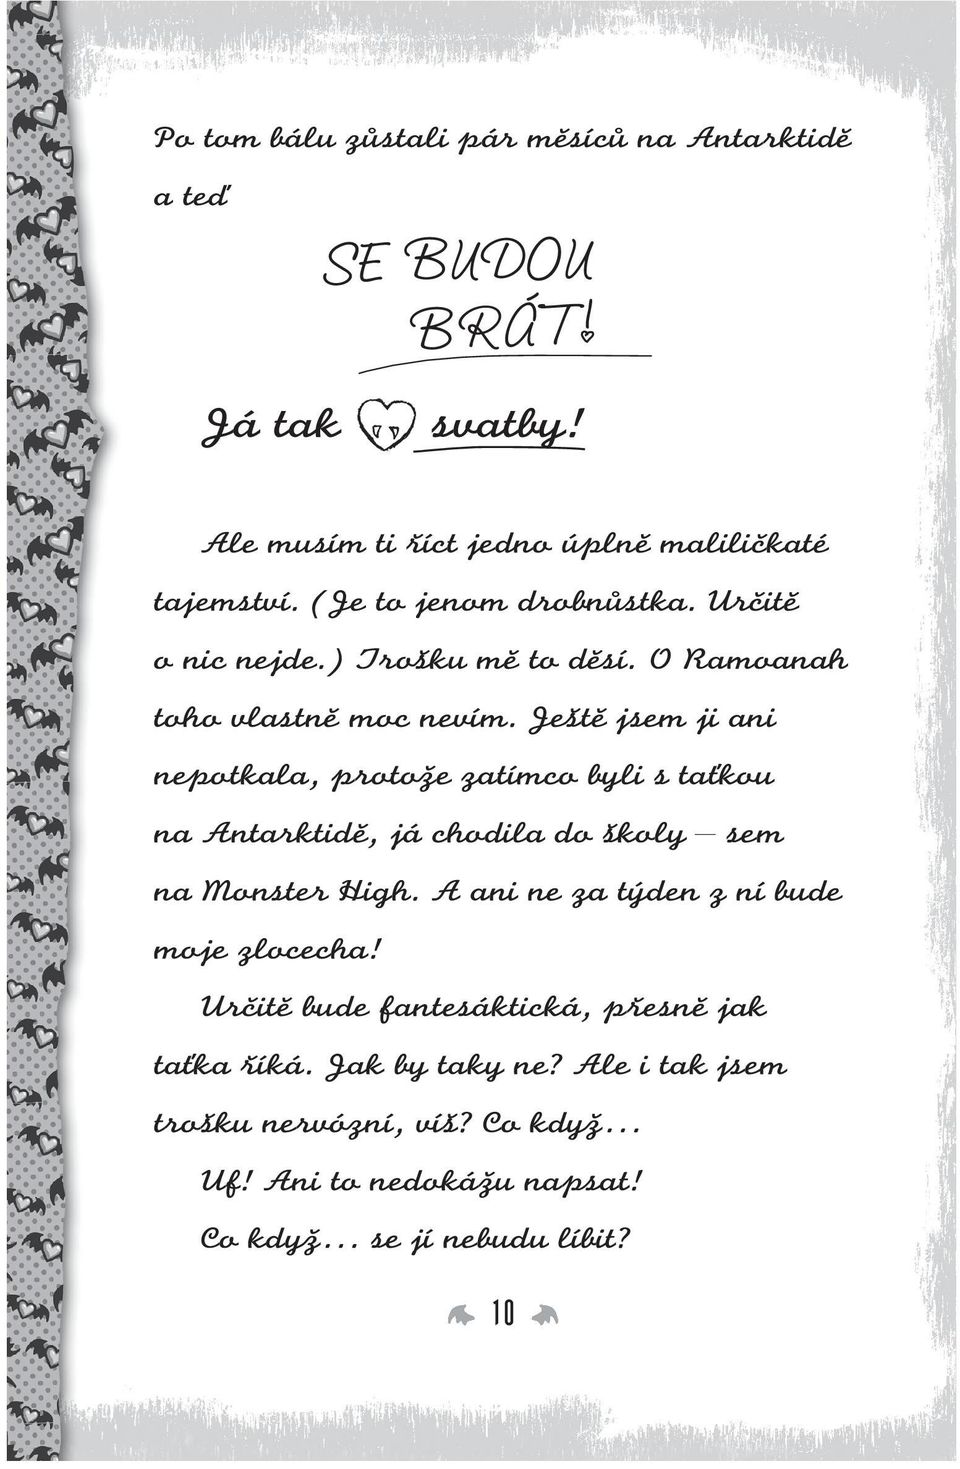 Po tom bálu zůstali pár měsíců na Antarktidě
a teď
SE BUDOU
BRÁT!
Já tak svatby!
Ale musím ti říct jedno úplně maliličkaté
tajemství. (Je to jenom drobnůstka. Určitě
o nic nejde.) Trošku mě to děsí. O Ramoanah
toho vlastně moc nevím. Ještě jsem ji ani
nepotkala, protože zatímco byli s taťkou
na Antarktidě, já chodila do školy – sem
na Monster High. A ani ne za týden z ní bude
moje zlocecha!
Určitě bude fantesáktická, přesně jak
taťka říká. Jak by taky ne? Ale i tak jsem
trošku nervózní, víš? Co když...
Uf! Ani to nedokážu napsat!
Co když... se jí nebudu líbit?
10